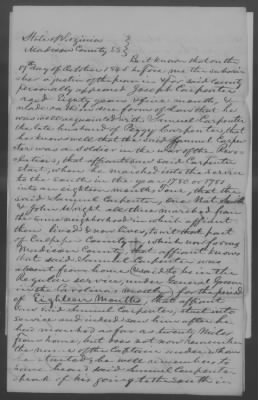 State of Virginia }
Madison County SS }
Be it known that on the
17th day of October 1845 before me the subscri-
ber a Justice of the peace in & for said County
personally appeared Joseph Carpenter
aged Eighty years & five months, &
made oath in due form of law that he
was well acquainted with Samuel Carpenter
the late husband of Peggy Carpenter, that
he knows well that the said Samuel Carpen-
ter was a soldier in the war of the Revo-
lution, that affiant saw said Carpenter
start, when he marched into the service
to the South in the year 1780 or 1781
into an eighteen months Tour, that the
said Samuel Carpenter, one Nat Smith
& John Wright all three marched from
the same neighborhood in which affiant
then lived & now lives, to wit that part
of Culpeper County which now forms
Madison County, that affiant knows
that said Samuel Carpenter was
absent from home & said to be in the
Regular service, under General Green
in the Carolinas mostly, for the period
of Eighteen Months, that affiant
saw said Samuel Carpenter, start into
service and indeed saw him after he
had marched as far as twenty Miles
from home, but does not now remember
the name of the Captain under whom
he started, he well remembers to
have heard said Samuel Carpenter
speak of his going to the South in